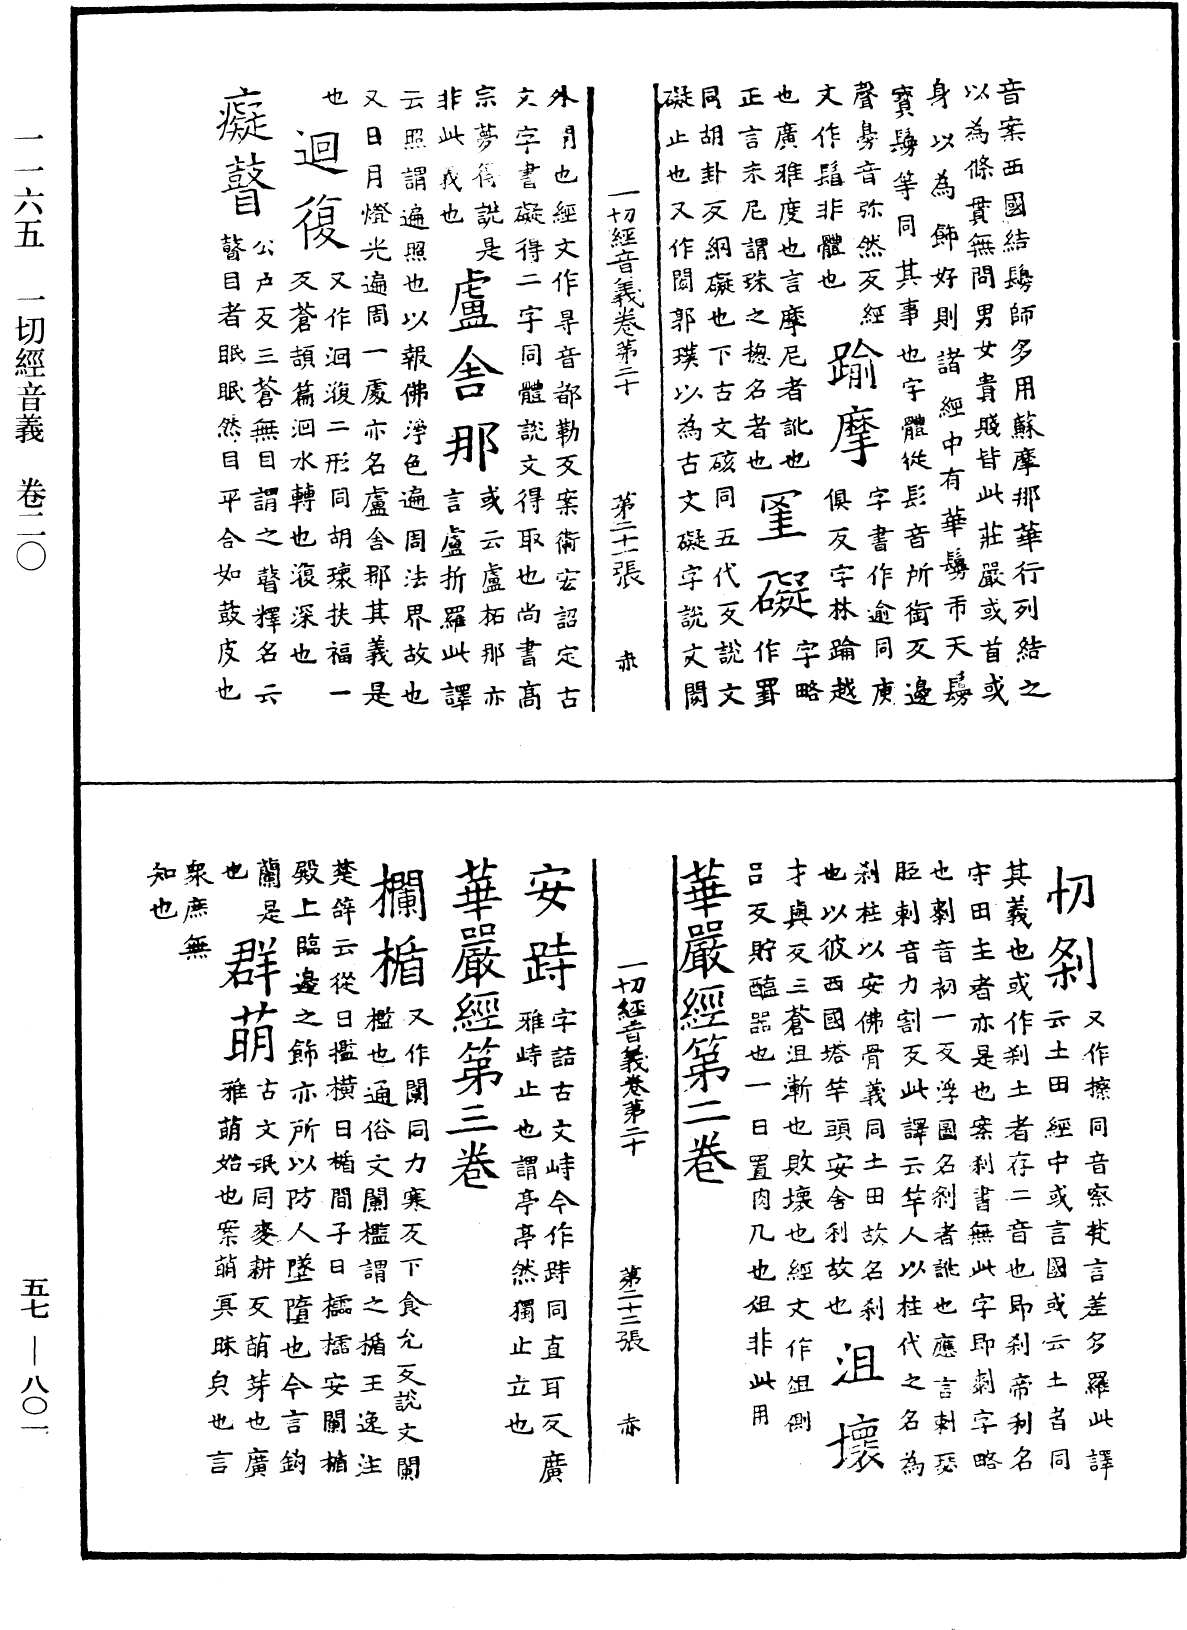 一一六五　一切經音義　卷二〇
音案西國結鬘師多用蘇摩那華行列結之
以為條貫無問男女貴賤皆此莊嚴或首或
身以為飾好則諸經中有華鬘市天鬘
寶鬘等同其事也字體從髟音所銜反邊
聲㝱音弥然反經
文作鬘非體也
踰摩
字書作逾同庾
俱反字林踰越
也廣雅度也言摩尼者訛也
正言末尼謂珠之摠名者也
罣礙
字略
作罫
同胡卦反網礙也下古文硋同五代反說文
礙止也又作閡郭璞以為古文礙字說文閡
一切經音義卷第二十　第二十一張　赤
外閇也經文作㝵音都勒反案衛宏詔定古
文字書礙得二字同體說文得取也尚書高
宗夢得說是
非此義也
盧舍那
或云盧柘那亦
言盧折羅此譯
云照謂遍照也以報佛淨色遍周法界故也
又日月燈光遍周一處亦名盧舍那其義是
也
迴復
又作洄澓二形同胡瓌扶福一
反蒼頡篇洄水轉也澓深也
癡瞽
公戶反三蒼無目謂之瞽釋名云
瞽目者眠眠然目平合如鼓皮也
忉剎
又作擦同音察梵言差多羅此譯
云土田經中或言國或云土者同
其義也或作剎土者存二音也即剎帝利名
守田主者亦是也案剎書無此字即刺字略
也刺音初一反浮圖名剎者訛也應言刺瑟
胝刺音力割反此譯云竿人以柱代之名為
剎柱以安佛骨義同土田故名剎
也以彼西國塔竿頭安舍利故也
沮壞
才與反三蒼沮漸也敗壞也經文作俎側
呂反貯醢器也一曰置肉几也俎非此用
華嚴經第二卷
一切經音義卷第二十　第二十二張　赤
安跱
字詁古文峙今作跱同直耳反廣
雅峙止也謂亭亭然獨止立也
華嚴經第三卷
欄楯
又作闌同力寒反下食允反說文闌
檻也通俗文闌檻謂之楯王逸注
楚辭云從曰檻橫曰楯間子曰櫺櫺安闌楯
殿上臨邊之飾亦所以防人墜墮也今言鉤
蘭是
也
群萌
古文氓同麥耕反萌芽也廣
雅萌始也案萌冥昧皃也言
衆庶無
知也
五七—八〇一